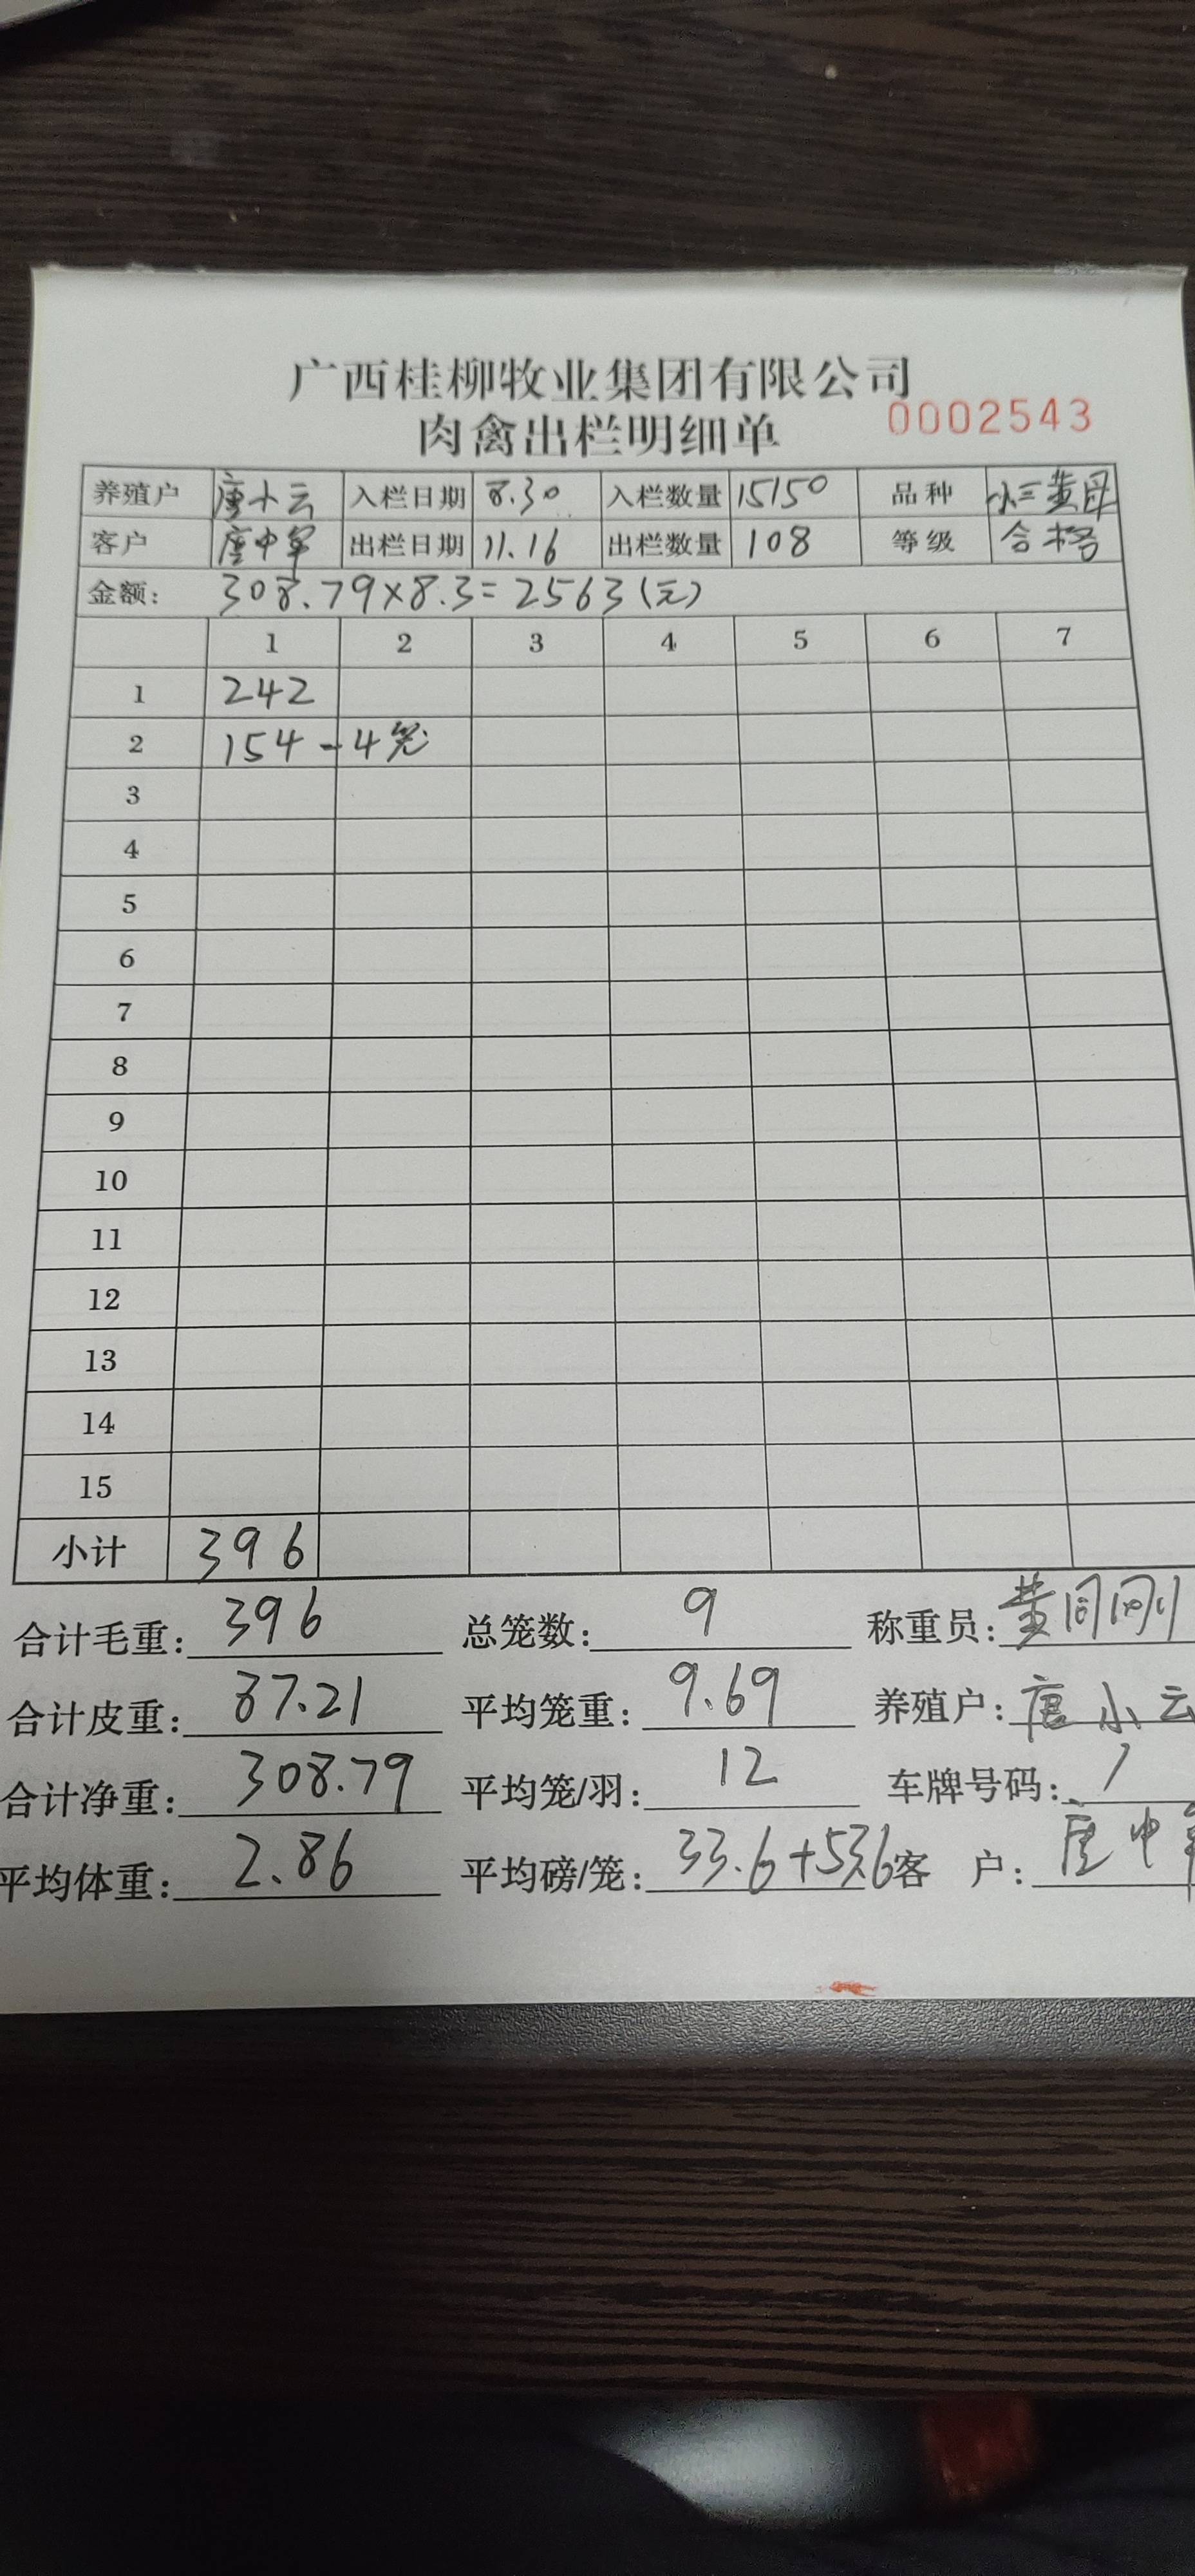 广西桂柳牧业集团有限公司
肉禽出栏明细单 0002543
养殖户 唐小云 入栏日期 8.30 入栏数量 15150 品种 小三黄母
客户 唐中军 出栏日期 11.16 出栏数量 108 等级 合格
金额: 308.79×8.3=2563(元)
1 2 3 4 5 6 7
1 242
2 154-4笼
3
4
5
6
7
8
9
10
11
12
13
14
15
小计 396
合计毛重: 396 总笼数: 9 称重员: 黄同刚
合计皮重: 87.21 平均笼重: 9.69 养殖户: 唐小云
合计净重: 308.79 平均笼/羽: 12 车牌号码: /
平均体重: 2.86 平均磅/笼: 33.6+53.6 客 户: 唐中军